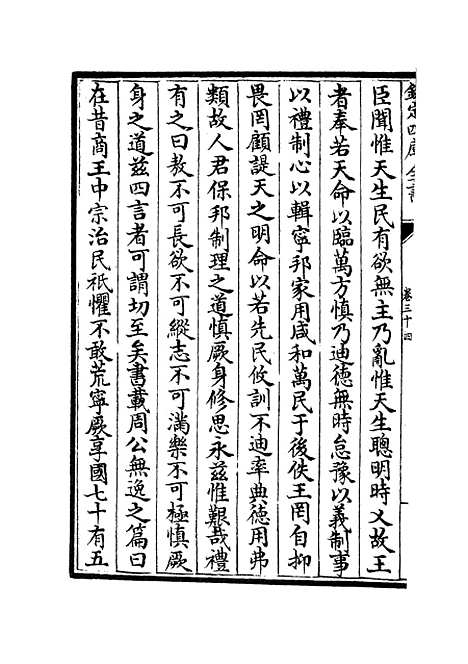 欽定四庫全書
卷三十四
臣聞惟天生民有欲無主乃亂惟天生聰明時乂故王
者奉若天命以臨萬方慎乃迪德無時怠豫以義制事
以禮制心以輯寧邦家用咸和萬民于後佚王罔自抑
畏罔顧諟天之明命以若先民攸訓不迪率典德用弗
類故人君保邦制理之道慎厥身修思永兹惟艱哉禮
有之曰敖不可長欲不可縱志不可滿樂不可極慎厥
身之道兹四言者可謂切至矣書載周公無逸之篇曰
在昔商王中宗治民祗懼不敢荒寧厥享國七十有五